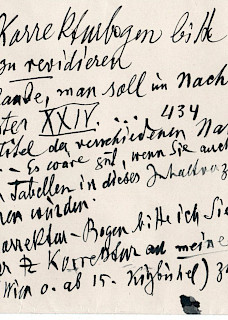 Korrekturbogen bitte
zu revidieren
Lande, man soll im Nach
ter XXIV. ... 434
titel der verschiedenen Na
... Es wäre gut, wenn Sie auch
n Tabellen in dieses Inhaltverz
ren würden.
orrektur-Bogen bitte ich Sie
er Korrektur an meine
(Wien o. ab 15. Kitzbühel) z